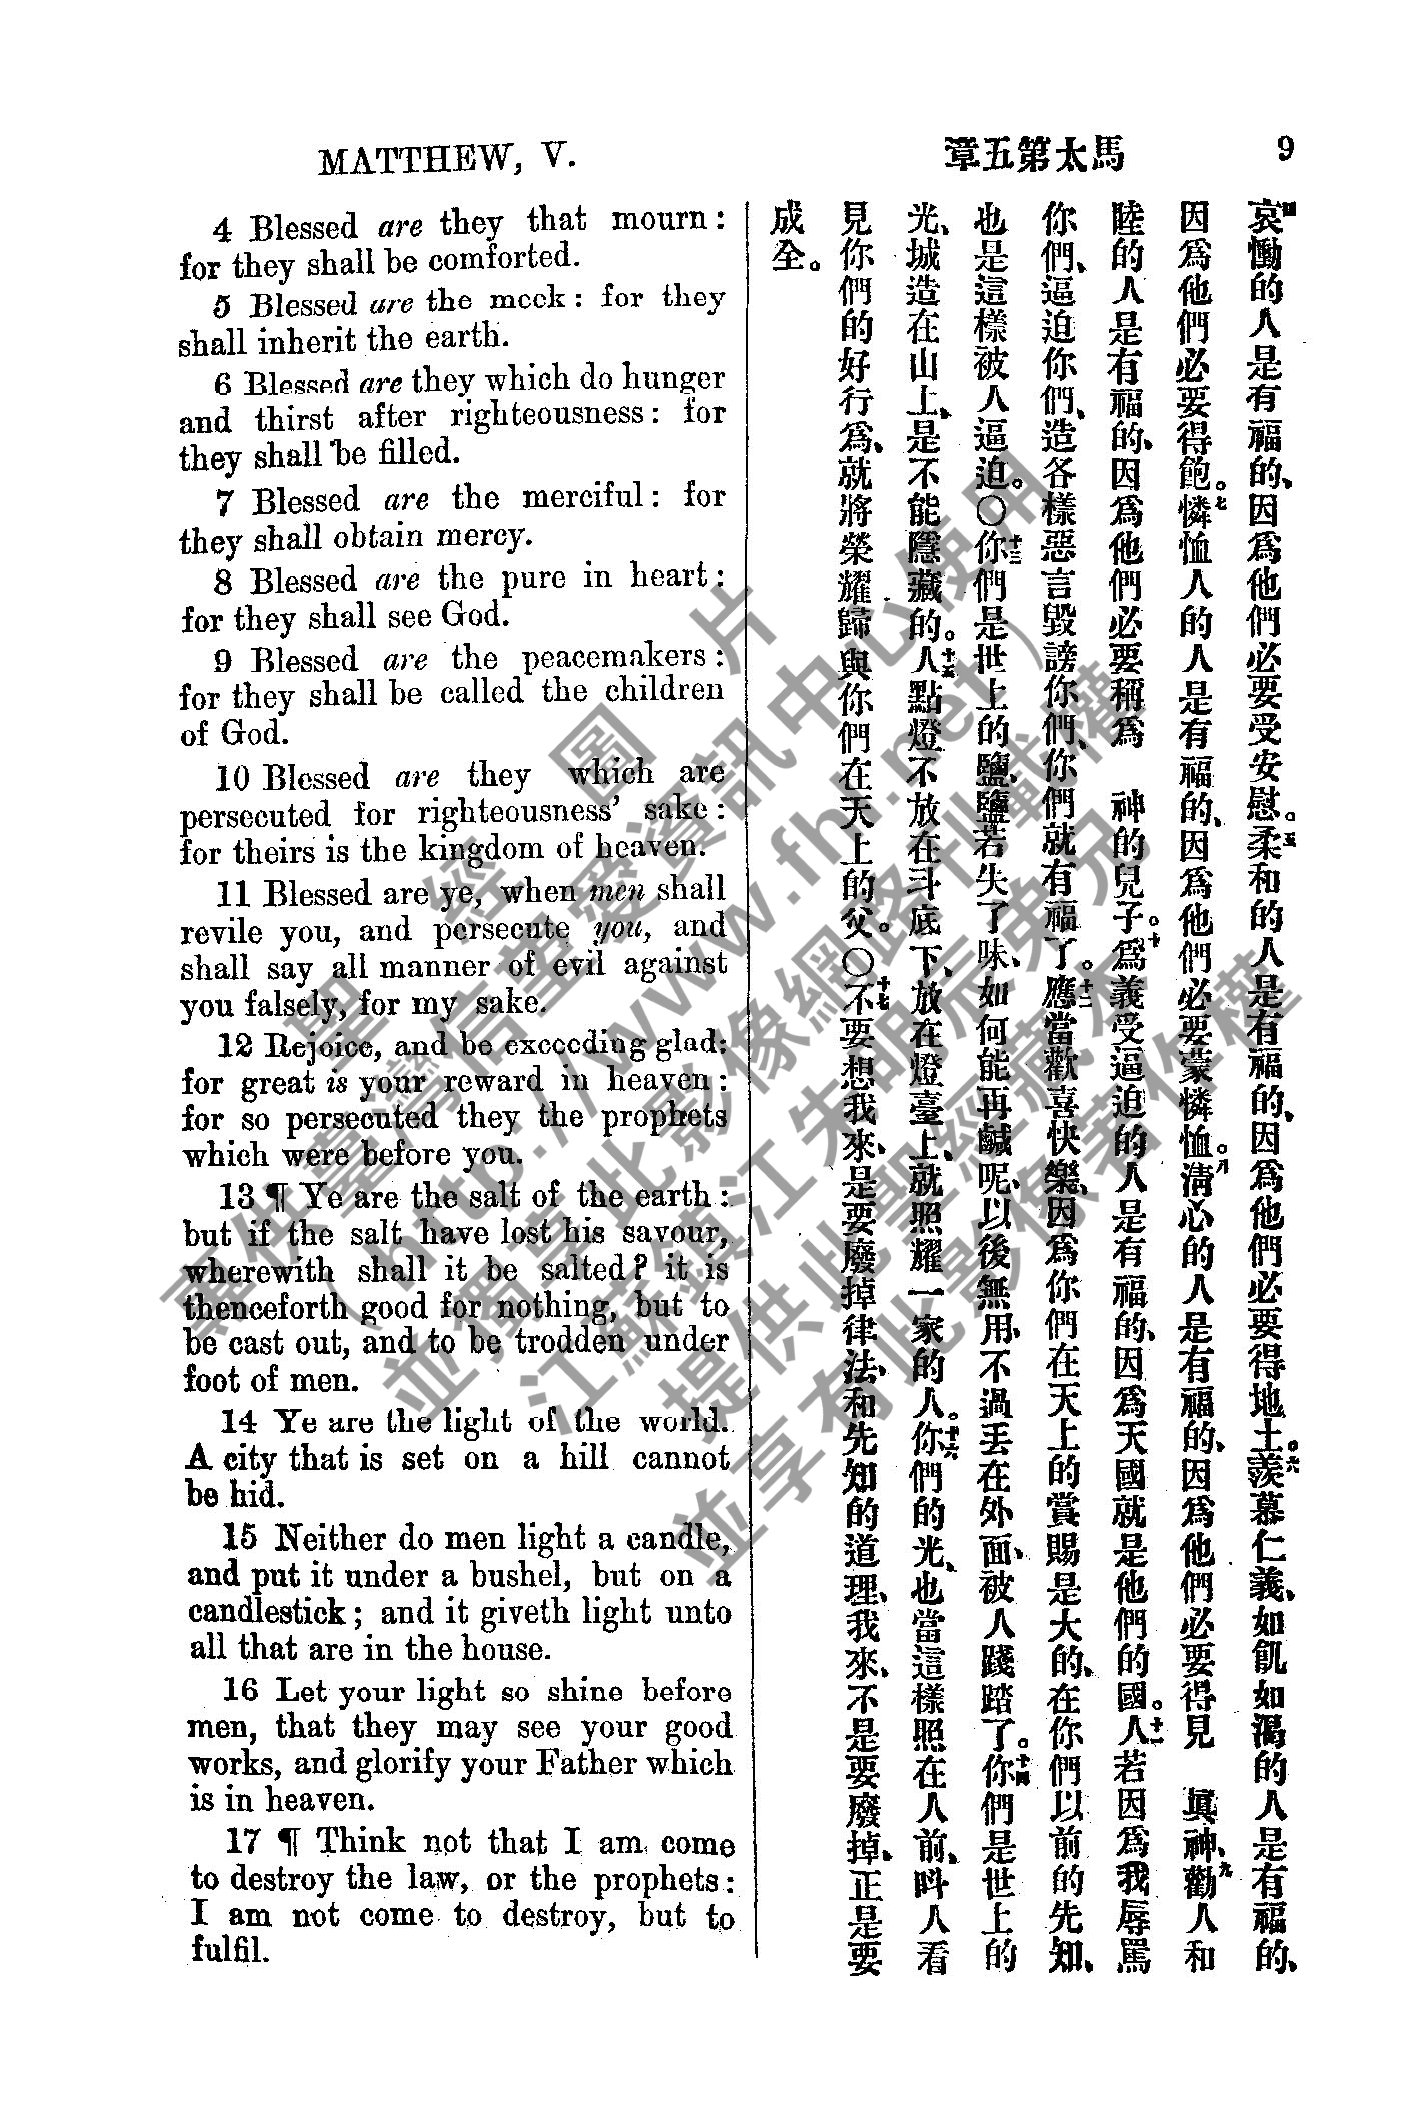 MATTHEW, V.
章五第太馬
9
4 Blessed are they that mourn:
for they shall be comforted.
5 Blessed are the meek: for they
shall inherit the earth.
6 Blessed are they which do hunger
and thirst after righteousness: for
they shall be filled.
7 Blessed are the merciful: for
they shall obtain mercy.
8 Blessed are the pure in heart:
for they shall see God.
9 Blessed are the peacemakers:
for they shall be called the children
of God.
10 Blessed are they which are
persecuted for righteousness' sake:
for theirs is the kingdom of heaven.
11 Blessed are ye, when men shall
revile you, and persecute you, and
shall say all manner of evil against
you falsely, for my sake.
12 Rejoice, and be exceeding glad:
for great is your reward in heaven:
for so persecuted they the prophets
which were before you.
13 ¶ Ye are the salt of the earth:
but if the salt have lost his savour,
wherewith shall it be salted? it is
thenceforth good for nothing, but to
be cast out, and to be trodden under
foot of men.
14 Ye are the light of the world.
A city that is set on a hill cannot
be hid.
15 Neither do men light a candle,
and put it under a bushel, but on a
candlestick; and it giveth light unto
all that are in the house.
16 Let your light so shine before
men, that they may see your good
works, and glorify your Father which
is in heaven.
17 ¶ Think not that I am come
to destroy the law, or the prophets:
I am not come to destroy, but to
fulfil.
四哀慟的人是有福的、因爲他們必要受安慰。五柔和的人是有福的、因爲他們必要得地土。六羨慕仁義、如飢如渴的人是有福的、
因爲他們必要得飽。七憐恤人的人是有福的、因爲他們必要蒙憐恤。八淸心的人是有福的、因爲他們必要得見 眞神、九勸人和
睦的人是有福的、因爲他們必要稱爲 神的兒子。十爲義受逼迫的人是有福的、因爲天國就是他們的國。十一人若因爲我辱罵
你們、逼迫你們、造各樣惡言毀謗你們、你們就有福了。十二應當歡喜快樂、因爲你們在天上的賞賜是大的、在你們以前的先知、
也是這樣被人逼迫。〇十三你們是世上的鹽、鹽若失了味、如何能再鹹呢、以後無用、不過丟在外面、被人踐踏了。十四你們是世上的
光、城造在山上、是不能隱藏的。十五人點燈不放在斗底下、放在燈臺上、就照耀一家的人。十六你們的光、也當這樣照在人前、呌人看
見你們的好行爲、就將榮耀歸與你們在天上的父。〇十七不要想我來、是要廢掉律法、和先知的道理、我來、不是要廢掉、正是要
成全。
聖經圖片
惠供臺灣信望愛資訊中心使用
（http://www.fhl.net）
並獨享此影像網路刊載權
江蘇鎮江朱明辰弟兄
提供此聖經藏本
並享有此影像著作權